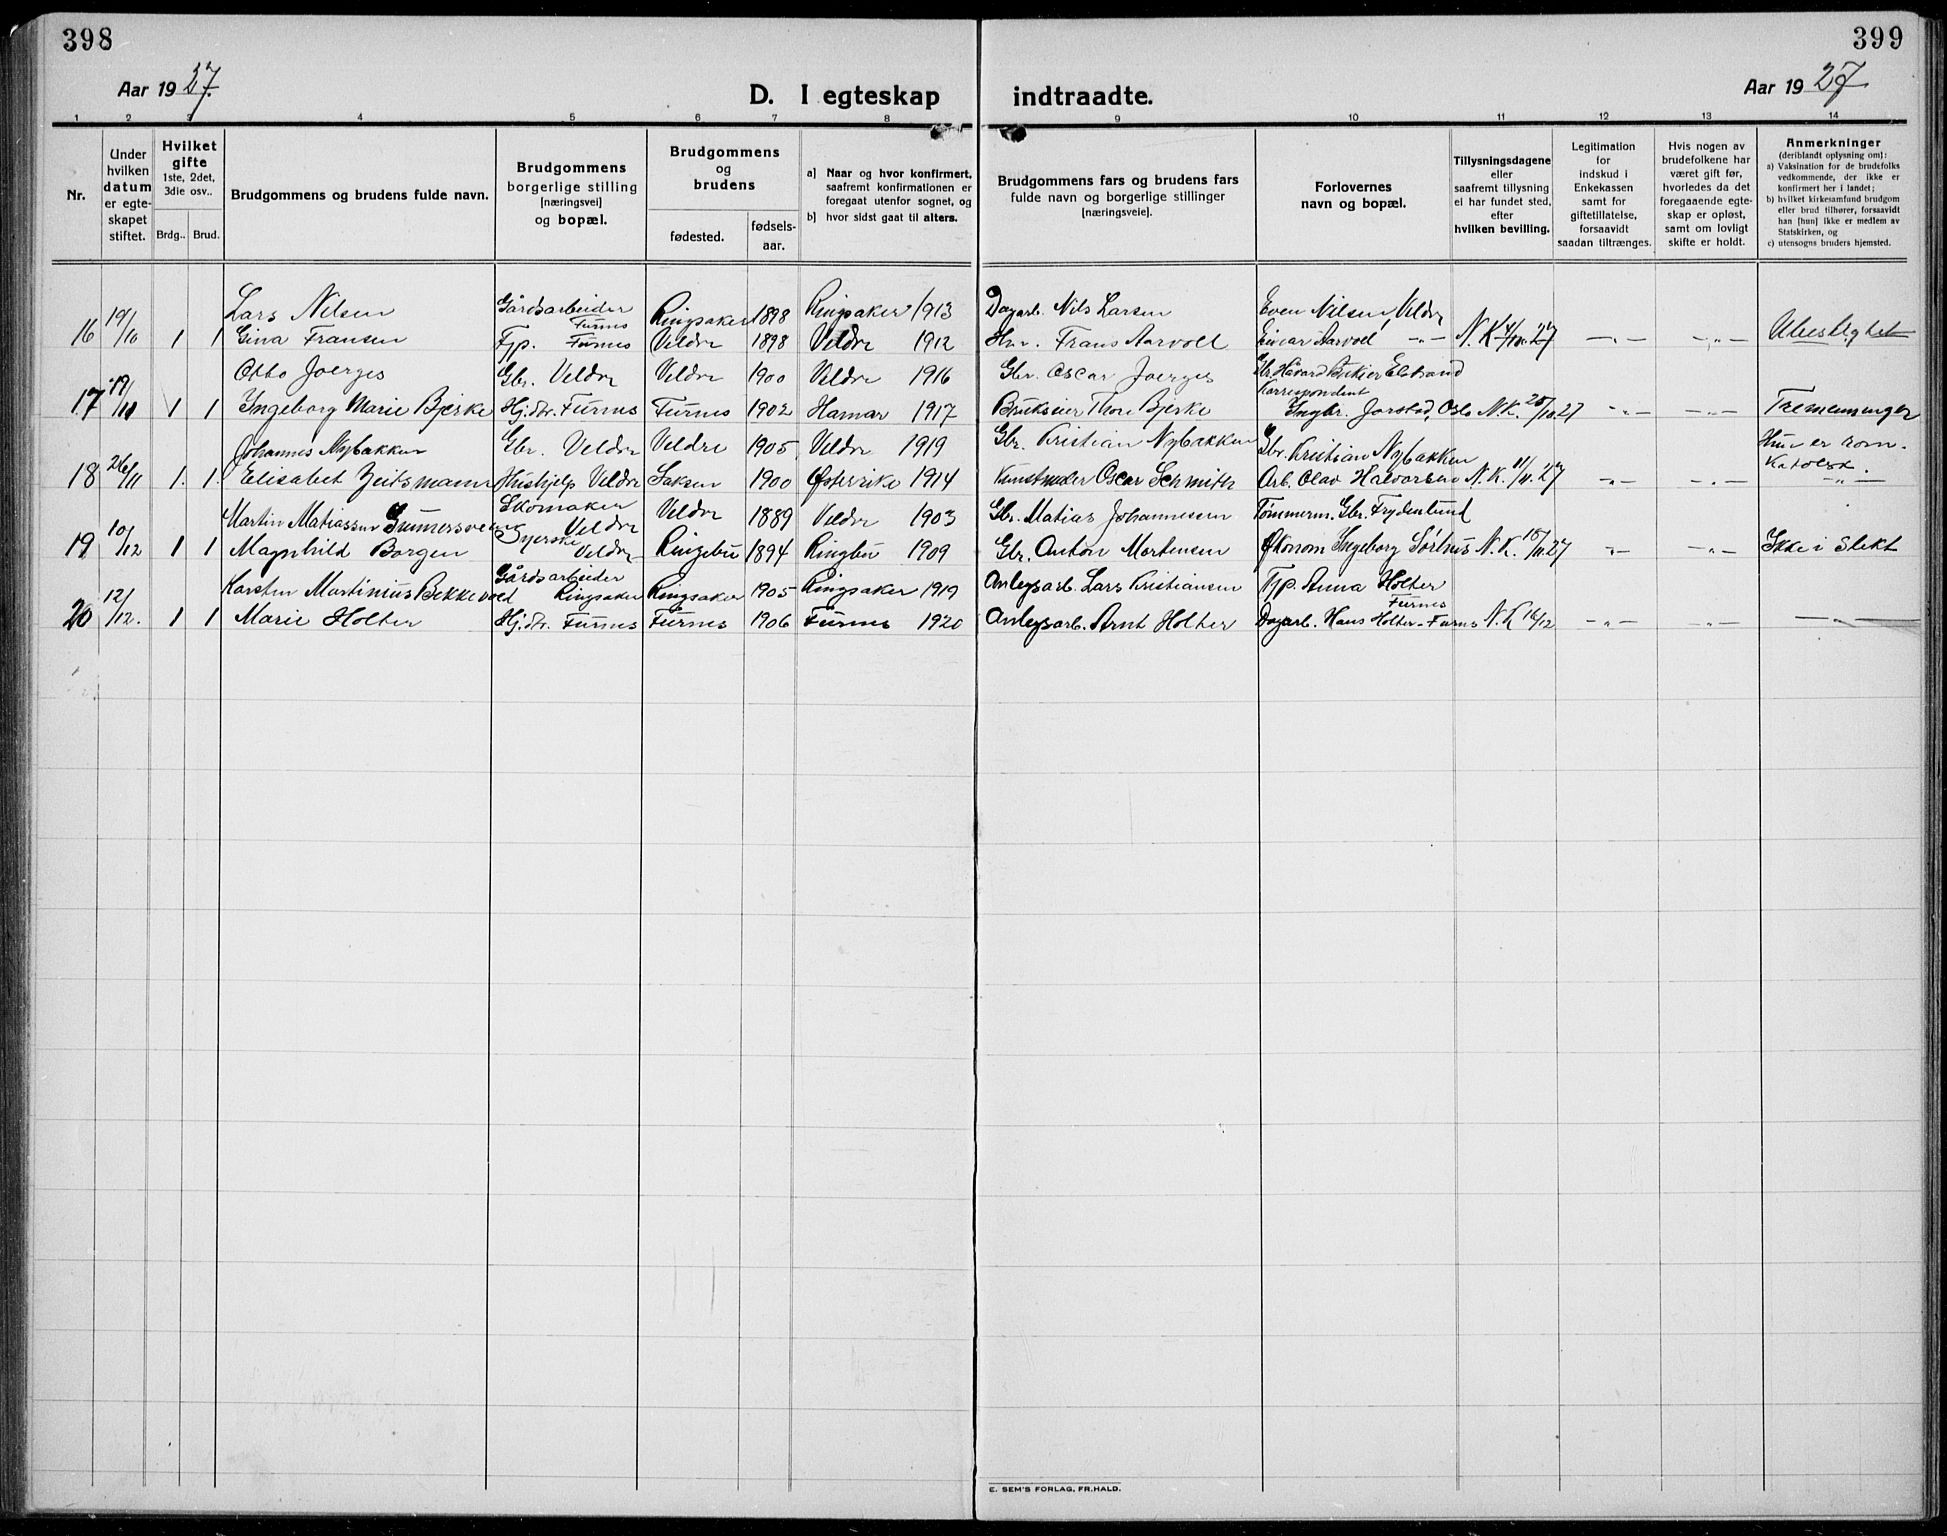 398
399
Aar 1927.
D. I egteskap indtraadte.
Aar 1927
1 2 3 4 5 6 7 8 9 10 11 12 13 14
Nr.
Under hvilken datum er egte-skapet stiftet.
Hvilket gifte
1ste, 2det, 3die osv..
Brdg.. Brud.
Brudgommens og brudens fulde navn.
Brudgommens borgerlige stilling [næringsvei] og bopæl.
Brudgommens og brudens
fødested.
fødsels-aar.
a) Naar og hvor konfirmert, saafremt konfirmationen er foregaat utenfor sognet, og
b) hvor sidst gaat til alters.
Brudgommens fars og brudens fars fulde navn og borgerlige stillinger [næringsveie].
Forlovernes navn og bopæl.
Tillysningsdagene eller saafremt tillysning ei har fundet sted, efter hvilken bevilling.
Legitimation for indskud i Enkekassen samt for giftetillatelse, forsaavidt saadan tiltrænges.
Hvis nogen av brudefolkene har været gift før, hvorledes da det foregaaende egte-skap er opløst, samt om lovligt skifte er holdt.
Anmerkninger
(deriblandt oplysning om):
a) Vaksination for de brudefolks vedkommende, der ikke er konfirmert her i landet;
b) hvilket kirkesamfund brudgom eller brud tilhører, forsaavidt han [hun] ikke er medlem av Statskirken, og
c) utensogns bruders hjemsted.
Lars Nilsen Gårdsarbeider Furnes Ringsaker 1898 Ringsaker 1913 Dagarb. Nils Larsen Even Nilsen, Veldre
16 19/10 1 1 Gina Fransen Tjp. Furnes Veldre 1898 Veldre 1912 Frans Aarvolt Einar Aarvolt -"- N.K 4/10.27 -"- -"- Ubeslektet
Otto Joerges Gbr. Veldre Veldre 1900 Veldre 1916 Gbr. Oscar Joerges Elstrand
17 19/11 1 1 Ingeborg Marie Bjerke Hj.dtr. Furnes Furnes 1902 Hamar 1917 Brukseier Thore Bjerke Korrespondent Ingbr. Jorstad, Oslo N.K. 25/10 27 -"- -"- Tremenninger
Johannes Nybakken Gbr. Veldre Veldre 1905 Veldre 1919 Gbr. Kristian Nybakken Gbr. Kristian Nybakken Hun er rom. katolsk.
18 26/11 1. 1. Elisabet Zeitsmann Hushjelp Veldre Saksen 1900 Østerrike 1914 Oscar Schmith Arb. Olav Halvorsen N.K. 11/11.27 -"- -"- -"-
Martin Matiassen Gunnersveen Skomaker Veldre Veldre 1889 Veldre 1903 Gbr. Matias Johannessen Tømmerm. Gbr. Frydenlund
19 10/12 1 1 Magnhild Borgen Syerske Veldre Ringebu 1894 Ringbu 1909 Gbr. Anton Mortensen Økonom Ingeborg Sørlnes N.K. 15/11.27 -"- -"- Ikke i slekt
Karsten Martinius Bekkevold Gårdsarbeider Ringsaker Ringsaker 1905 Ringsaker 1919 Anlegsarb. Lars Kristiansen Tjp. Anna Holter Furnes
20 12/12. 1 1 Marie Holter Hj.dtr. Furnes Furnes 1906 Furnes 1920 Anlegsarb. Arnt Holter Dagarb. Hans Holter - Furnes N.K 16/12 -"- -"- -"-
E. SEM'S FORLAG, FR.HALD.